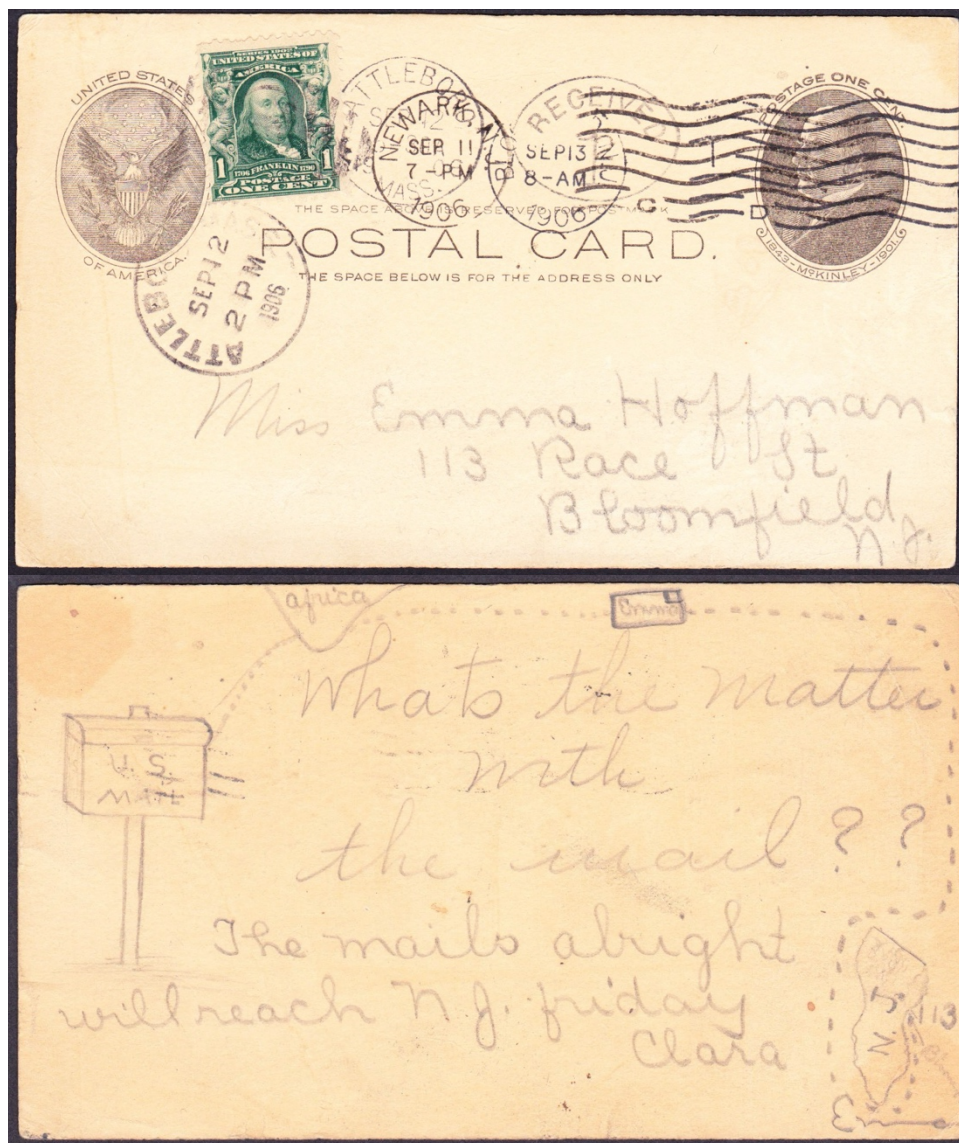 SERIES 1902
UNITED STATES OF
AMERICA
1706 FRANKLIN 1790
POSTAGE
1 ONE CENT 1
UNITED STATES
OF AMERICA
ATTLEBORO,
SEP 12
MASS.
NEWARK, N.J.
SEP 11
7 - PM
1906
RECEIVED
SEP 13
8 - AM
1906
2
1
C. D
POSTAGE ONE CENT.
1843 - McKINLEY - 1901.
THE SPACE ABOVE IS RESERVED FOR POSTMARK
POSTAL CARD.
THE SPACE BELOW IS FOR THE ADDRESS ONLY
ATTLEBORO MASS.
SEP 12
2 PM
1906
Miss Emma Hoffman
113 Race St
Bloomfield
N. J.
africa
Emma
What's the matter
with
the mail ? ?
U.S.
MAIL
The mails alright
will reach N. J. friday
Clara
N. J.
113